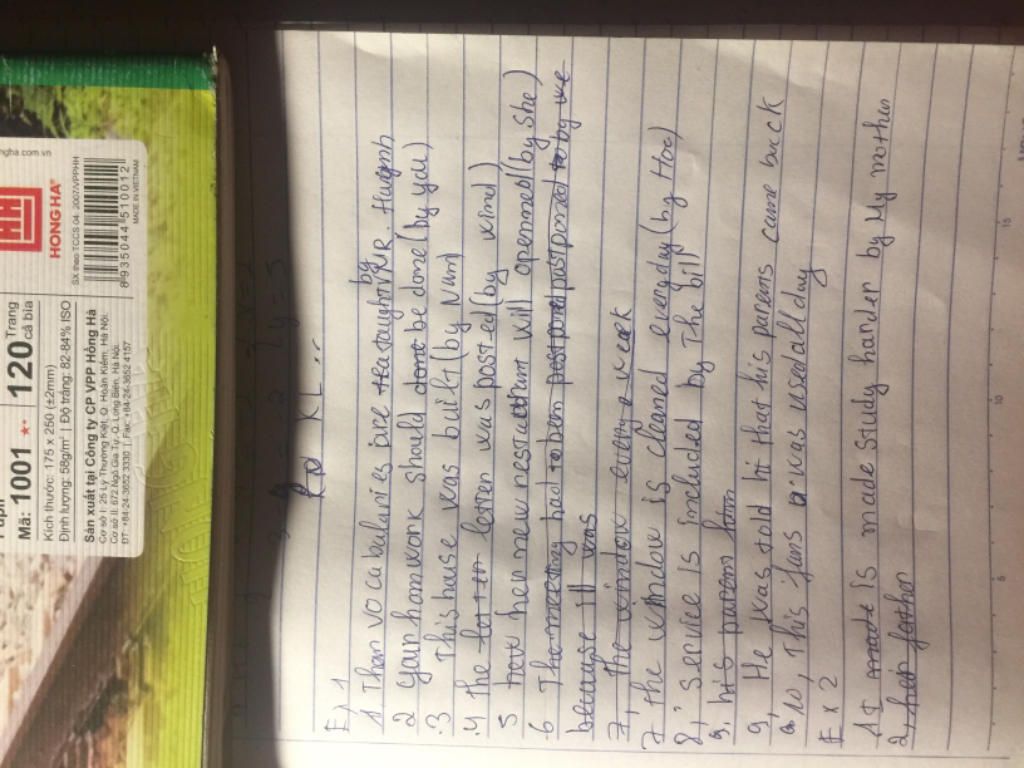 ngha.com.vn
HH
HONG HA®
SX theo TCCS 04: 2007/VPPHH
8935044510012
MADE IN VIETNAM
Mã: 1001 ★★ 120 Trang cả bìa
Kích thước: 175 x 250 (±2mm)
Định lượng: 58g/m² | Độ trắng: 82-84% ISO
Sản xuất tại Công ty CP VPP Hồng Hà
Cơ sở I: 25 Lý Thường Kiệt, Q. Hoàn Kiếm, Hà Nội.
Cơ sở II: 672 Ngô Gia Tự, Q. Long Biên, Hà Nội.
ĐT: +84-24-3652 3330 | Fax: +84-24-3652 4157
KL...
E, 1
1, Than vocabularies are taught by MR. Huynh
2 your homwork should dont be done (by you)
3 This house was built (by Nam)
4 the letter was posted (by wind)
5 new restuarant will openned (by she)
6 The meeting had to been postponed to by we
because ill was
7, The window every week
7 the window is cleaned everyday (by Hoa)
8, service is included by The bill
9. his parens
9, He was told that his parens came back
10, This was used all day
E x 2
1 made is made study harder by My mother
2, her father